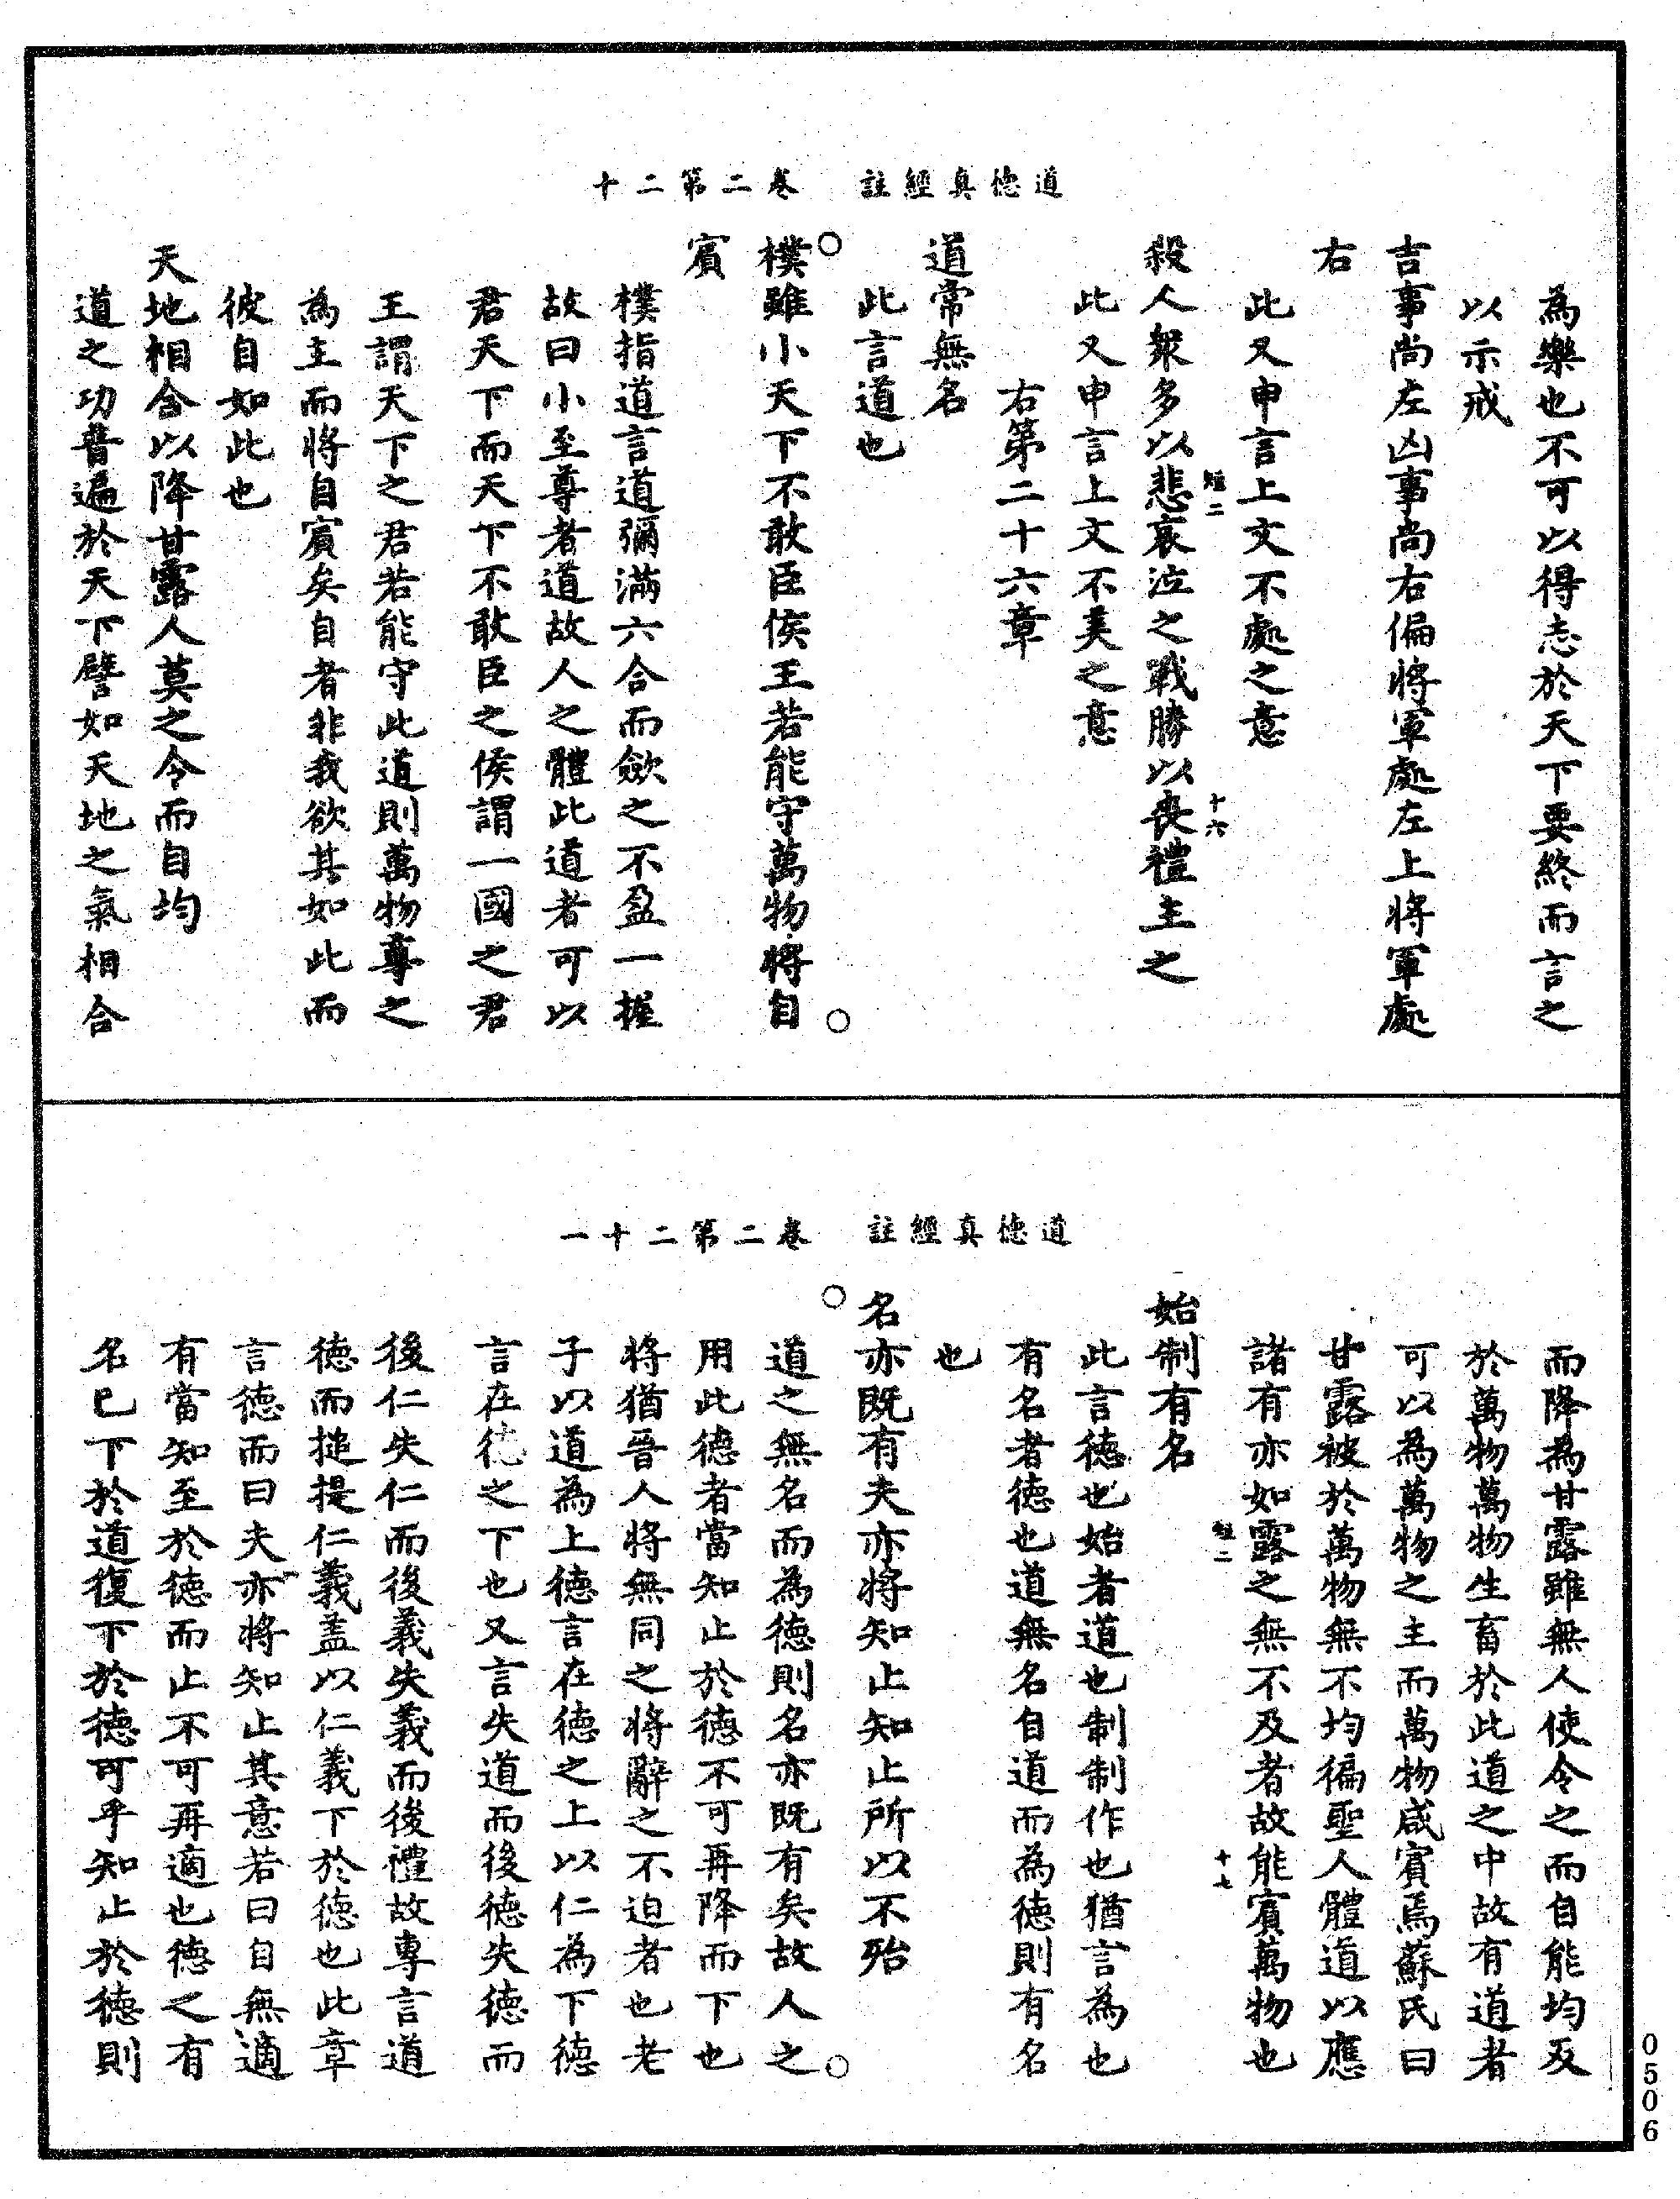 道德真經註　卷二第二十
為樂也不可以得志於天下要終而言之
以示戒
吉事尚左凶事尚右偏將軍處左上將軍處
右
此又申言上文不處之意
殺人衆多以悲哀泣之戰勝以喪禮主之
短二
十六
此又申言上文不美之意
右第二十六章
道常無名
此言道也
樸雖小天下不敢臣侯王若能守萬物將自
賓
樸指道言道彌滿六合而歛之不盈一握
故曰小至尊者道故人之體此道者可以
君天下而天下不敢臣之侯謂一國之君
王謂天下之君若能守此道則萬物尊之
為主而將自賓矣自者非我欲其如此而
彼自如此也
天地相合以降甘露人莫之令而自均
道之功普遍於天下譬如天地之氣相合
道德真經註　卷二第二十一
而降為甘露雖無人使令之而自能均及
於萬物萬物生畜於此道之中故有道者
可以為萬物之主而萬物咸賓焉蘇氏曰
甘露被於萬物無不均徧聖人體道以應
諸有亦如露之無不及者故能賓萬物也
短二
十七
始制有名
此言德也始者道也制制作也猶言為也
有名者德也道無名自道而為德則有名
也
名亦既有夫亦將知止知止所以不殆
道之無名而為德則名亦既有矣故人之
用此德者當知止於德不可再降而下也
將猶晉人將無同之將辭之不迫者也老
子以道為上德言在德之上以仁為下德
言在德之下也又言失道而後德失德而
後仁失仁而後義失義而後禮故專言道
德而搥提仁義盖以仁義下於德也此章
言德而曰夫亦將知止其意若曰自無適
有當知至於德而止不可再適也德之有
名已下於道復下於德可乎知止於德則
0506